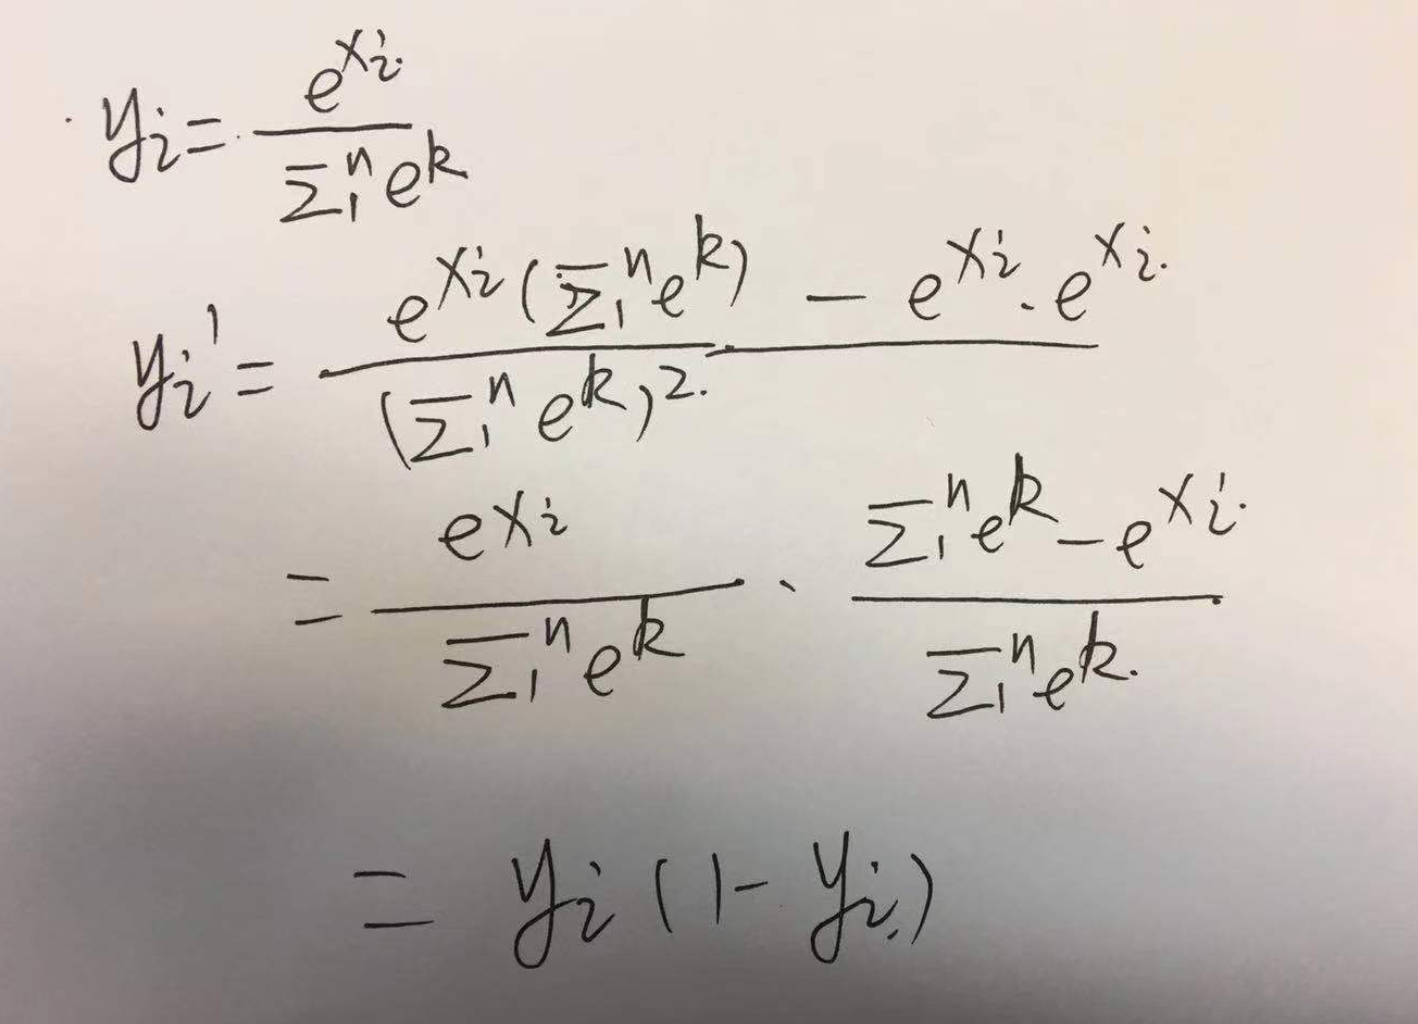 y_i = e^{x_i} / Σ_1^n e^k
y_i' = (e^{x_i}(Σ_1^n e^k) - e^{x_i} · e^{x_i}) / (Σ_1^n e^k)^2
= e^{x_i} / Σ_1^n e^k · (Σ_1^n e^k - e^{x_i}) / Σ_1^n e^k
= y_i(1 - y_i)